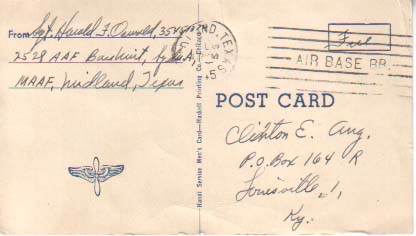 From Sgt. Harold F. Oswald, 35
2528 AAF Baseunit, Sqdn. A,
MAAF, Midland, Texas
ND, TEXAS
5
Free
AIR BASE BR.
POST CARD
Clinton E. Aug.
P.O. Box 164 R
Louisville, 1,
Ky.
Handi Service Men's Card—Haskell Printing Co.—Chicago